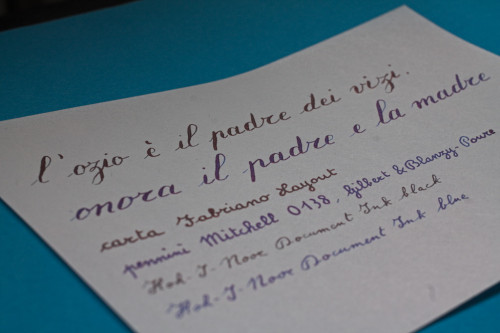 l'ozio è il padre dei vizi.
onora il padre e la madre
carta Fabriano Layout
pennini Mitchell 0138, Gilbert & Blanzy-Poure
Hoh-I-Noor Document Ink black
Hoh-I-Noor Document Ink blue